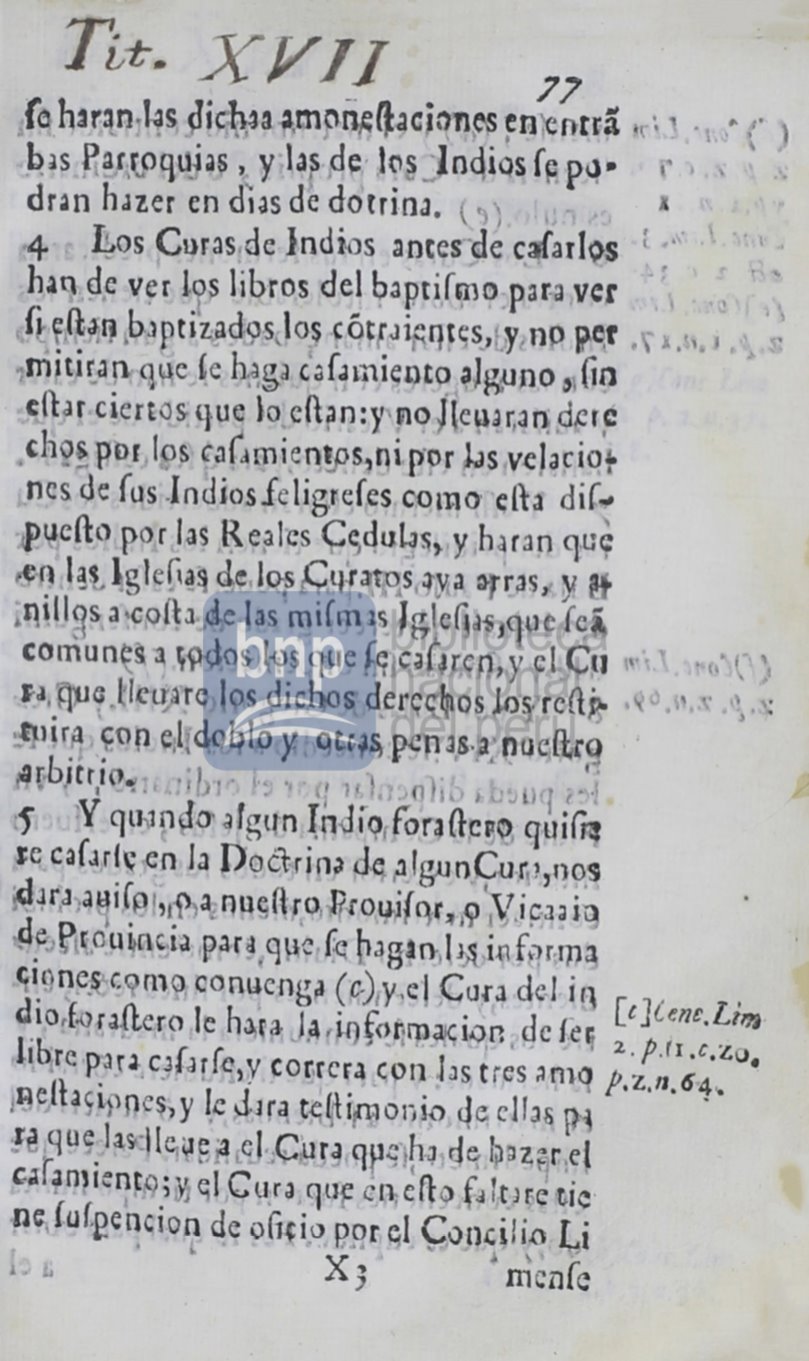 Tit. XVII
77
se haran las dichaa amonestaciones en entrã
bas Parroquias, y las de los Indios se po-
dran hazer en dias de dotrina.
4 Los Curas de Indios antes de casarlos
han de ver los libros del baptismo para ver
si estan baptizados los cõtraientes, y no per
mitiran que se haga casamiento alguno, sin
estar ciertos que lo estan: y no lleuaran dere
chos por los casamientos, ni por las velacio-
nes de sus Indios feligreses como esta dis-
puesto por las Reales Cedulas, y haran que
en las Iglesias de los Curatos aya arras, y a-
nillos a costa de las mismas Iglesias, que seã
comunes a todos los que se casaren, y el Cu
ra que lleuare los dichos derechos los resti-
tuira con el doblo y otras penas a nuestro
arbitrio.
5 Y quando algun Indio forastero quisie
re casarse en la Doctrina de algun Cura, nos
dara auiso, o a nuestro Prouisor, o Vicaaio
de Prouincia para que se hagan las informa
ciones como conuenga (c) y el Cura del in
dio forastero le hara la informacion de ser
libre para casarse, y correra con las tres amo
nestaciones, y le dara testimonio de ellas pa
ra que las lleue a el Cura que ha de hazer el
casamiento; y el Cura que en esto faltare tie
ne suspencion de oficio por el Concilio Li
X3 mense
[c] Conc. Lim
2. p. 11. c. 20.
p. 2. n. 64.
bnp biblioteca
nacional
del perú